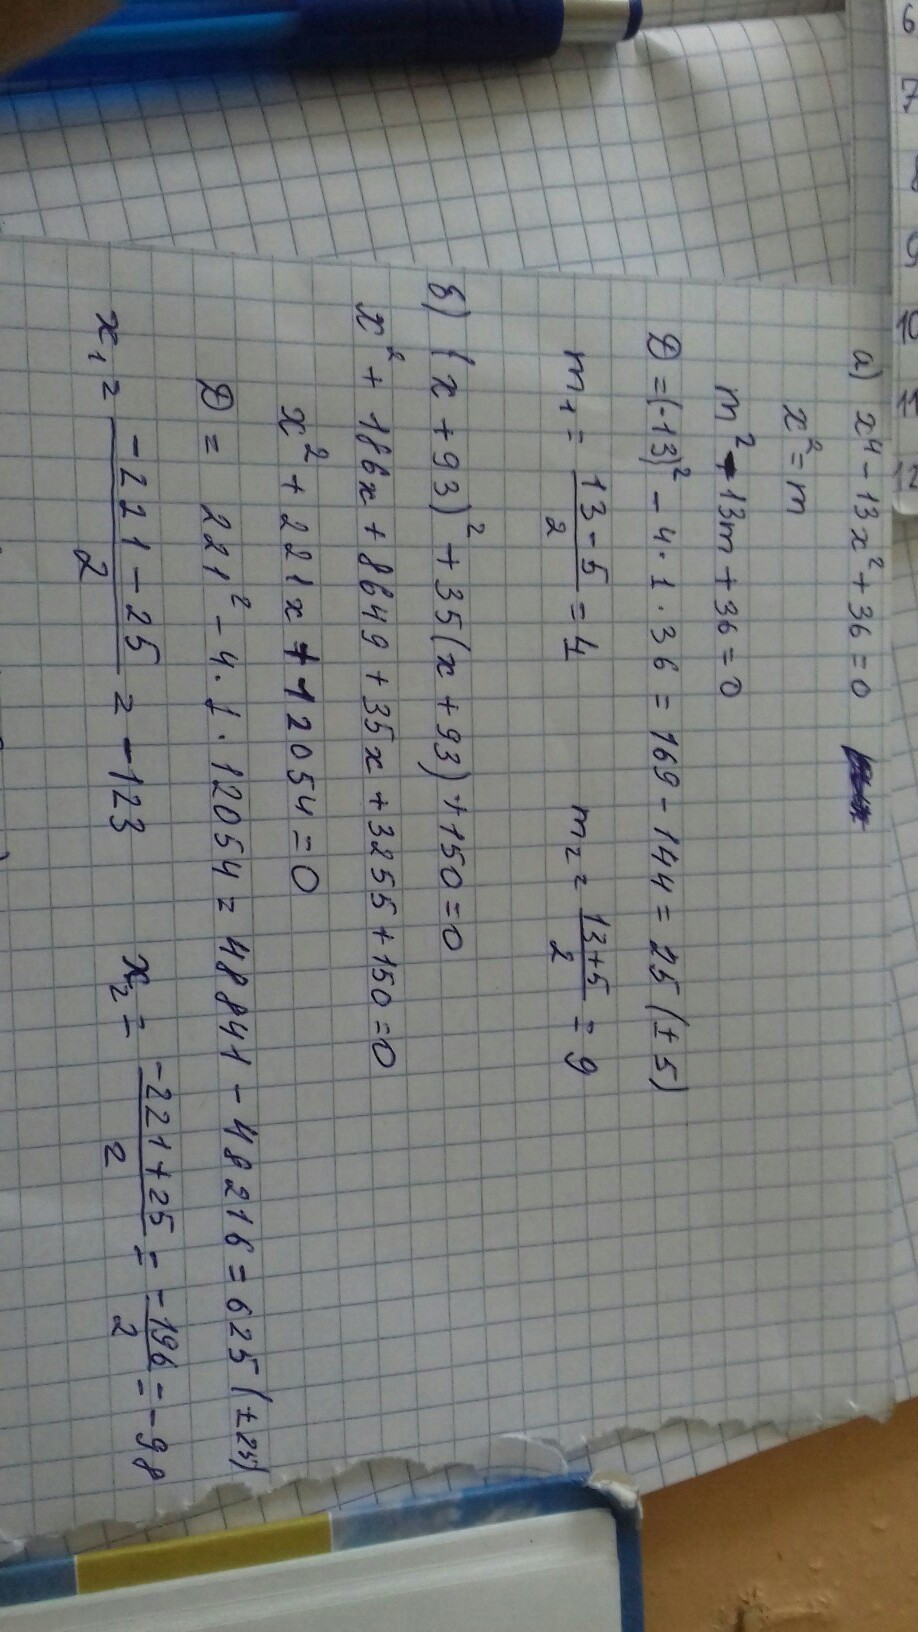 а) x⁴ - 13x² + 36 = 0
x² = m
m² - 13m + 36 = 0
D = (-13)² - 4 · 1 · 36 = 169 - 144 = 25 (± 5)
m₁ = (13 - 5)/2 = 4    m₂ = (13 + 5)/2 = 9
б) (x + 93)² + 35(x + 93) + 150 = 0
x² + 186x + 8649 + 35x + 3255 + 150 = 0
x² + 221x + 12054 = 0
D = 221² - 4 · 1 · 12054 = 48841 - 48216 = 625 (± 25)
x₁ = (-221 - 25)/2 = -123    x₂ = (-221 + 25)/2 = -196/2 = -98
6
7
8
9
10
11
12